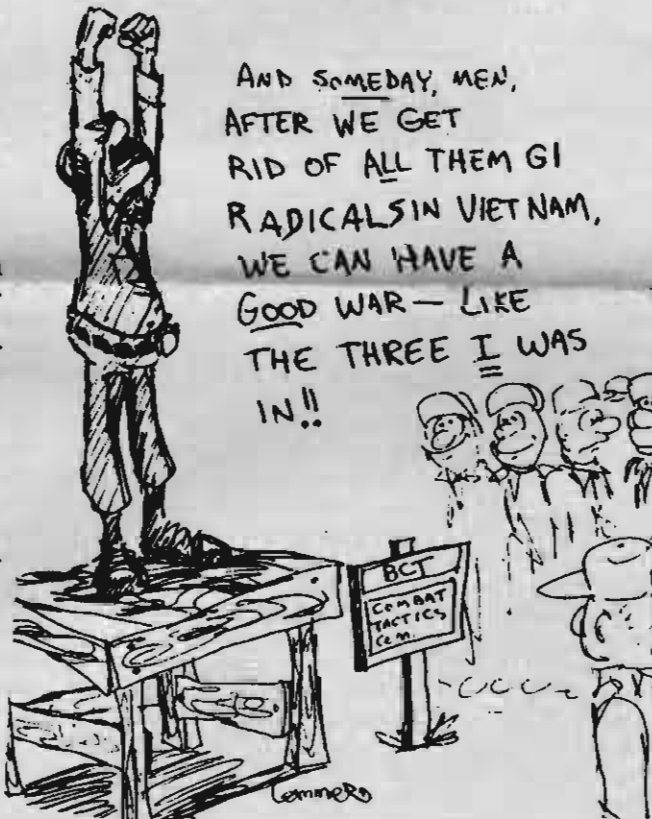 AND SOMEDAY, MEN,
AFTER WE GET
RID OF ALL THEM GI
RADICALS IN VIET NAM,
WE CAN HAVE A
GOOD WAR — LIKE
THE THREE I WAS
IN!!
BCT
COMBAT
TACTICS